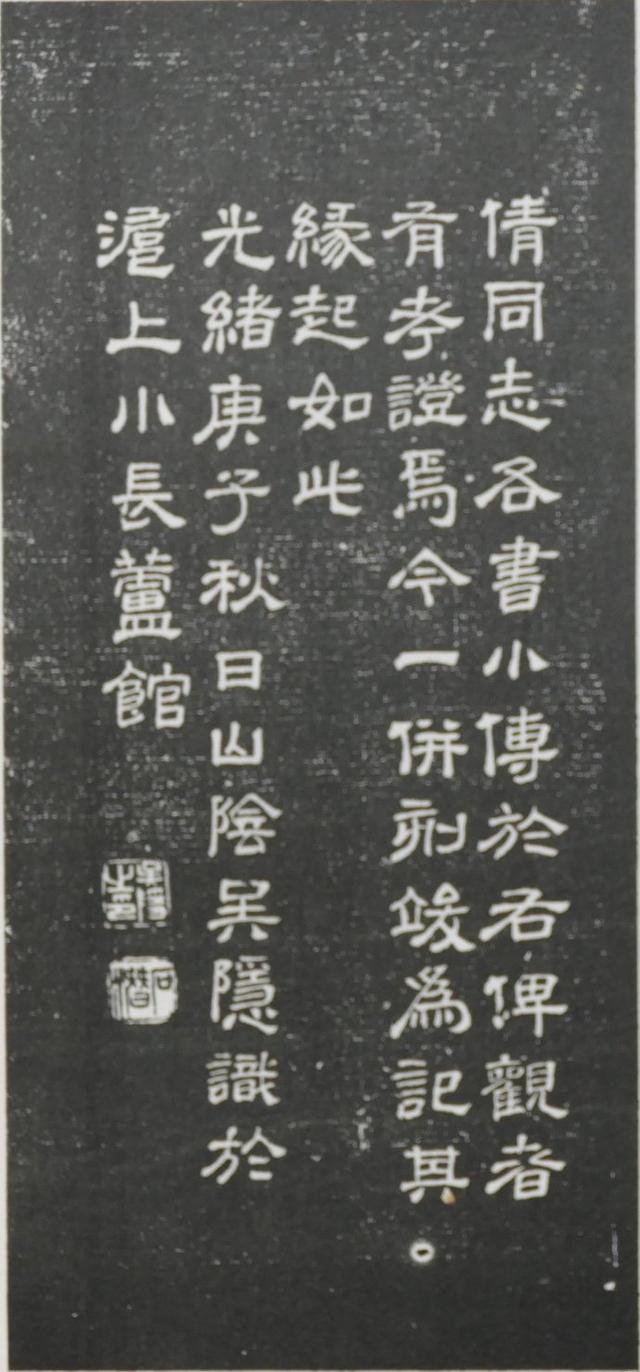 倩同志各書小傳於右俾觀者
有孝證焉今一併刻竣為記其。
緣起如此
光緒庚子秋日山陰吳隱識於
滬上小長蘆館
石潛